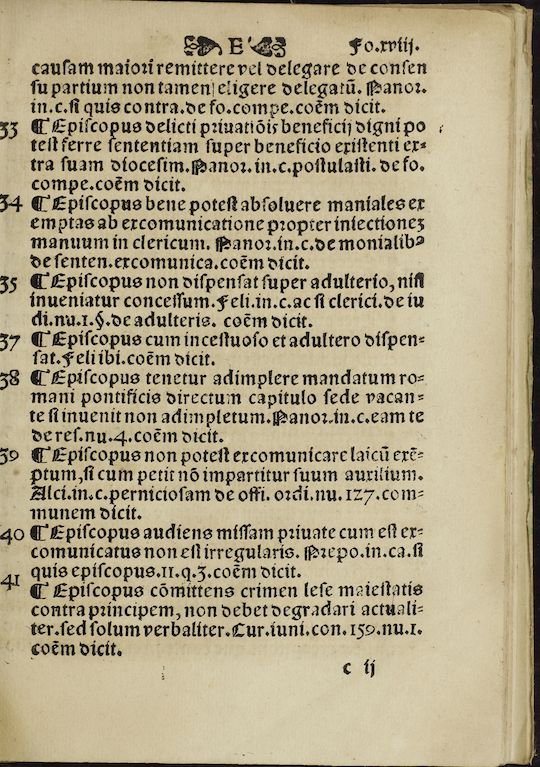 E
Fo.xviij.
causam maiori remittere vel delegare de consen
su partium non tamen eligere delegatū. Panor.
in.c.si quis contra.de fo.compe.coēm dicit.
33 ¶ Episcopus delicti priuatiōis beneficij digni po
test ferre sententiam super beneficio existenti ex=
tra suam diocesim.Panor.in.c.postulasti. de fo.
compe.coēm dicit.
34 ¶ Episcopus bene potest absoluere maniales ex
emptas ab excomunicatione propter iniectionez
manuum in clericum. Panor.in.c.de monialibꝰ
de senten.excomunica.coēm dicit.
35 ¶ Episcopus non dispensat super adulterio, nisi
inueniatur concessum.Feli.in.c.ac si clerici.de iu
di.nu.1.§.de adulteris. coēm dicit.
37 ¶ Episcopus cum incestuoso et adultero dispen=
sat.Feli ibi.coēm dicit.
38 ¶ Episcopus tenetur adimplere mandatum ro=
mani pontificis directum capitulo sede vacan=
te si inuenit non adimpletum.Panor.in.c.eam te
de res.nu.4.coēm dicit.
39 ¶ Episcopus non potest excomunicare laicū exē=
ptum,si cum petit nō impartitur suum auxilium.
Alci.in.c.perniciosam de offi. ordi.nu.127.com=
munem dicit.
40 ¶ Episcopus audiens missam priuate cum est ex=
comunicatus non est irregularis. Prepo.in.ca.si
quis episcopus.11.q.3.coēm dicit.
41 ¶ Episcopus cōmittens crimen lese maiestatis
contra principem, non debet degradari actuali=
ter.sed solum verbaliter.Cur.iuni.con.159.nu.1.
coēm dicit.
c ij